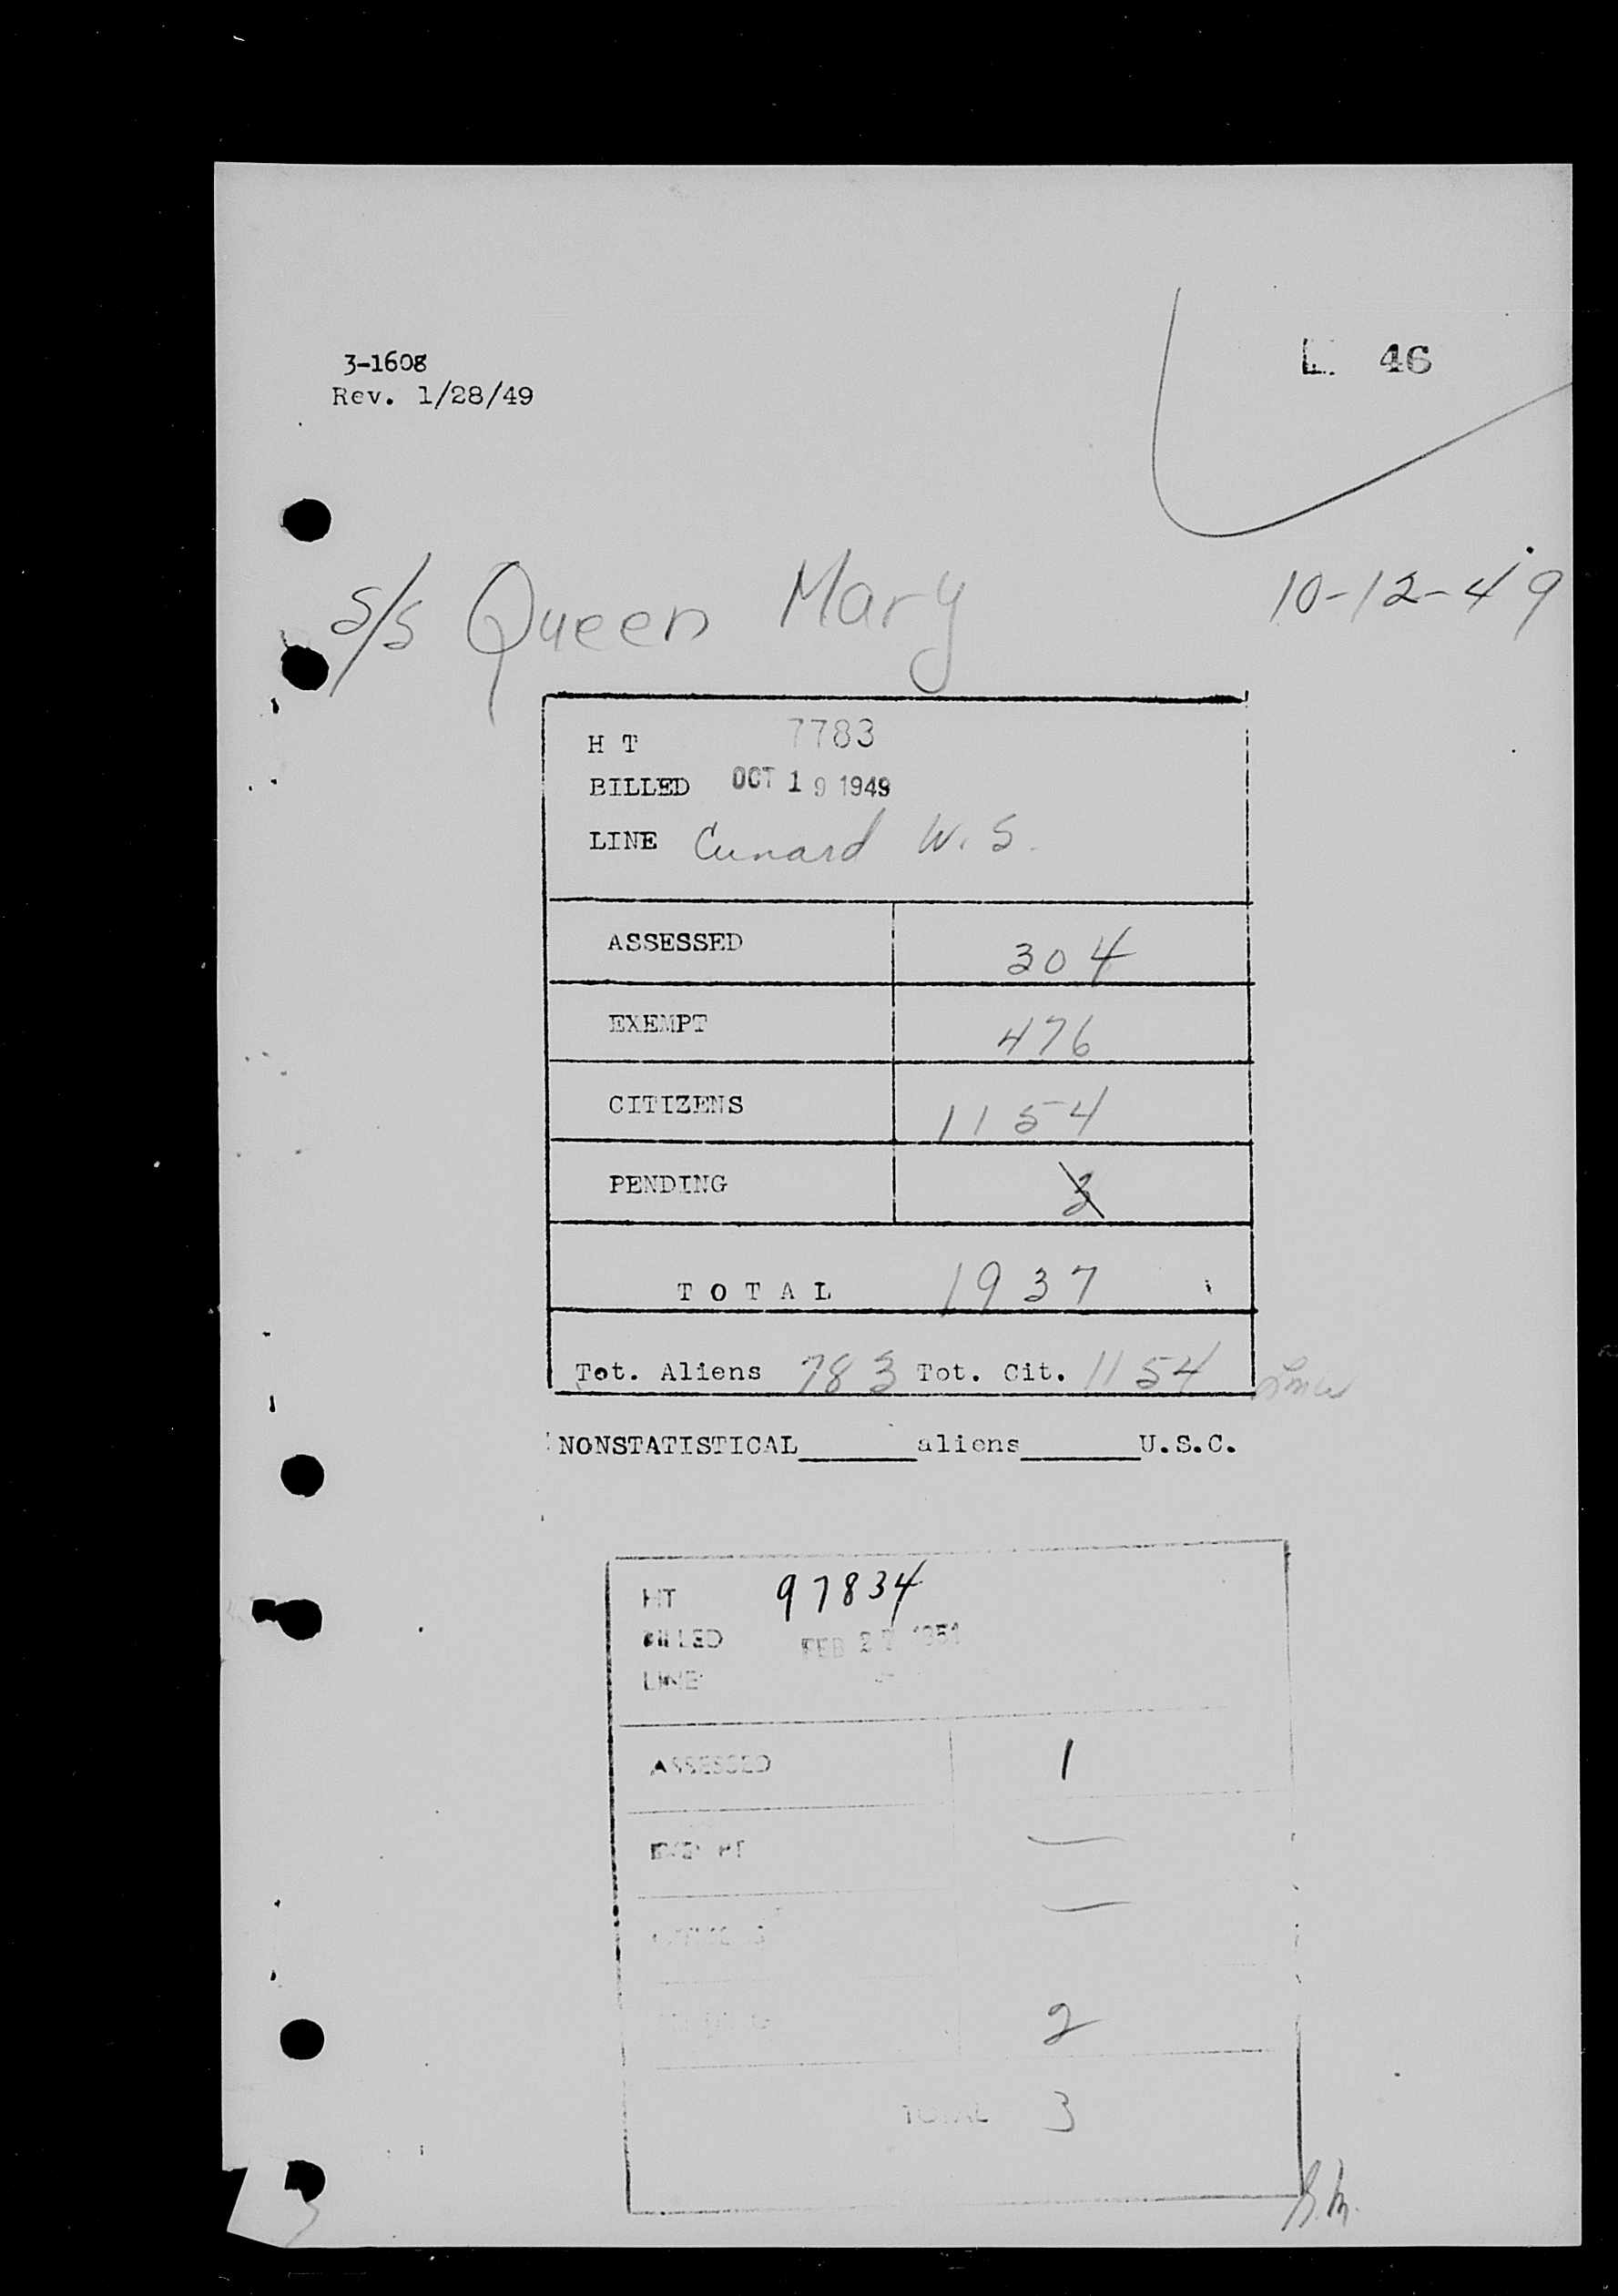 3-1608
Rev. 1/28/49
46
S/S Queen Mary 10-12-49
H T 7783
BILLED OCT 19 1949
LINE Cunard W. S.
ASSESSED 304
EXEMPT 476
CITIZENS 1154
PENDING 3
TOTAL 1937
Tot. Aliens 783 Tot. Cit. 1154
NONSTATISTICAL______aliens______U.S.C.
HT 97834
BILLED FEB 27 1951
LINE
ASSESSED 1
EXEMPT —
CITIZENS —
2
TOTAL 3